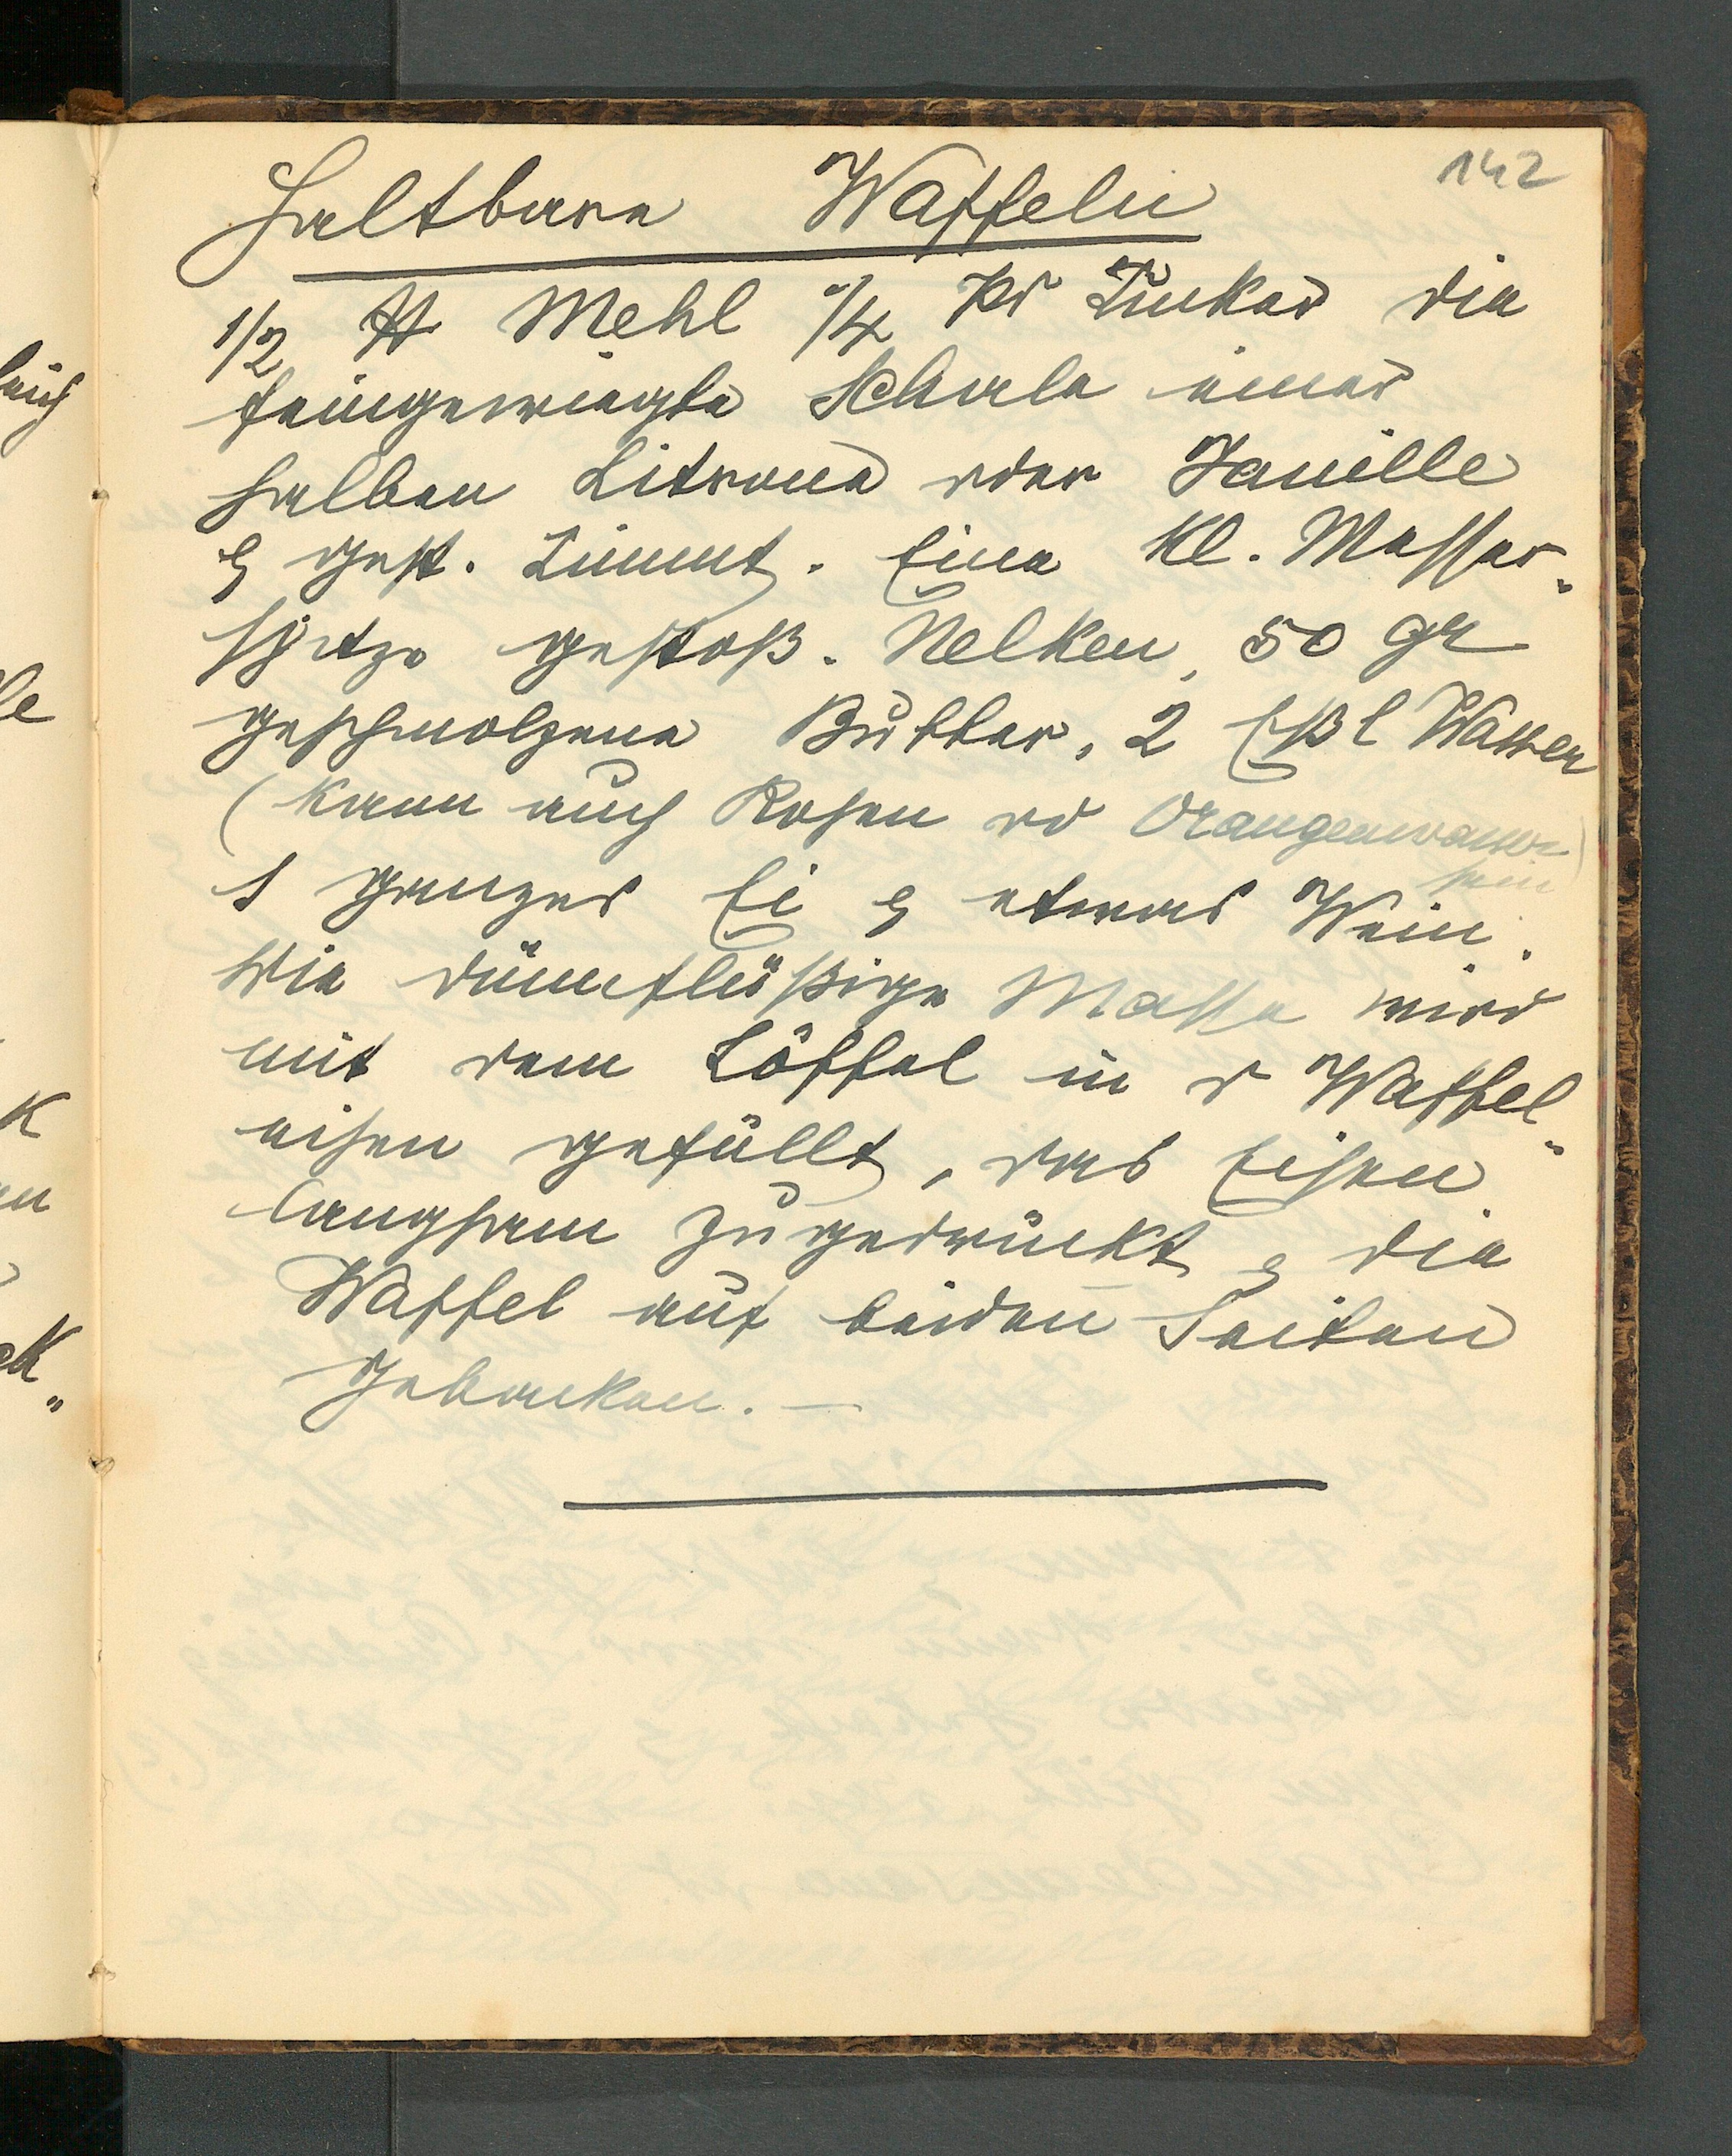 142
Haltbare Waffeln
1/2 ℔ Mehl 1/4 Pf Zucker die
feingewiegte Schale einer
halben Citrone oder Vanille
& gest. Zimmt. Eine kl. Messer-
spitze gestoß. Nelken, 50 gr
geschmolzene Butter, 2 Eßl Wasser
(kann auch Rosen od Orangenwasser
sein)
1 ganzes Ei & etwas Wein.
Die dünnflüßige Masse wird
mit dem Löffel in d Waffel-
eisen gefüllt, das Eisen
langsam zugedrückt & die
Waffel auf beiden Seiten
gebacken. —